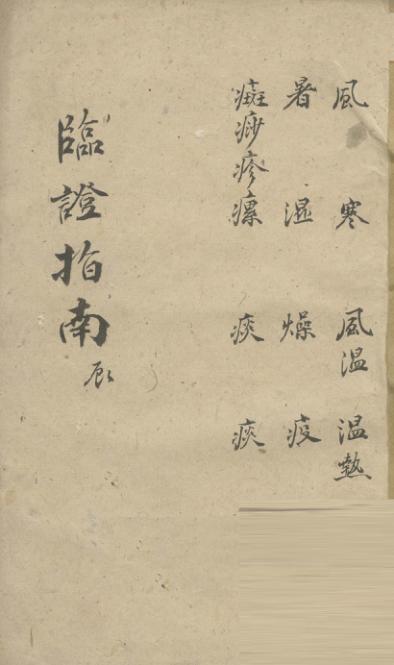 風 寒 風温 温熱
暑 湿 燥 疫
癍痧疹瘰 痰 痰
臨證指南